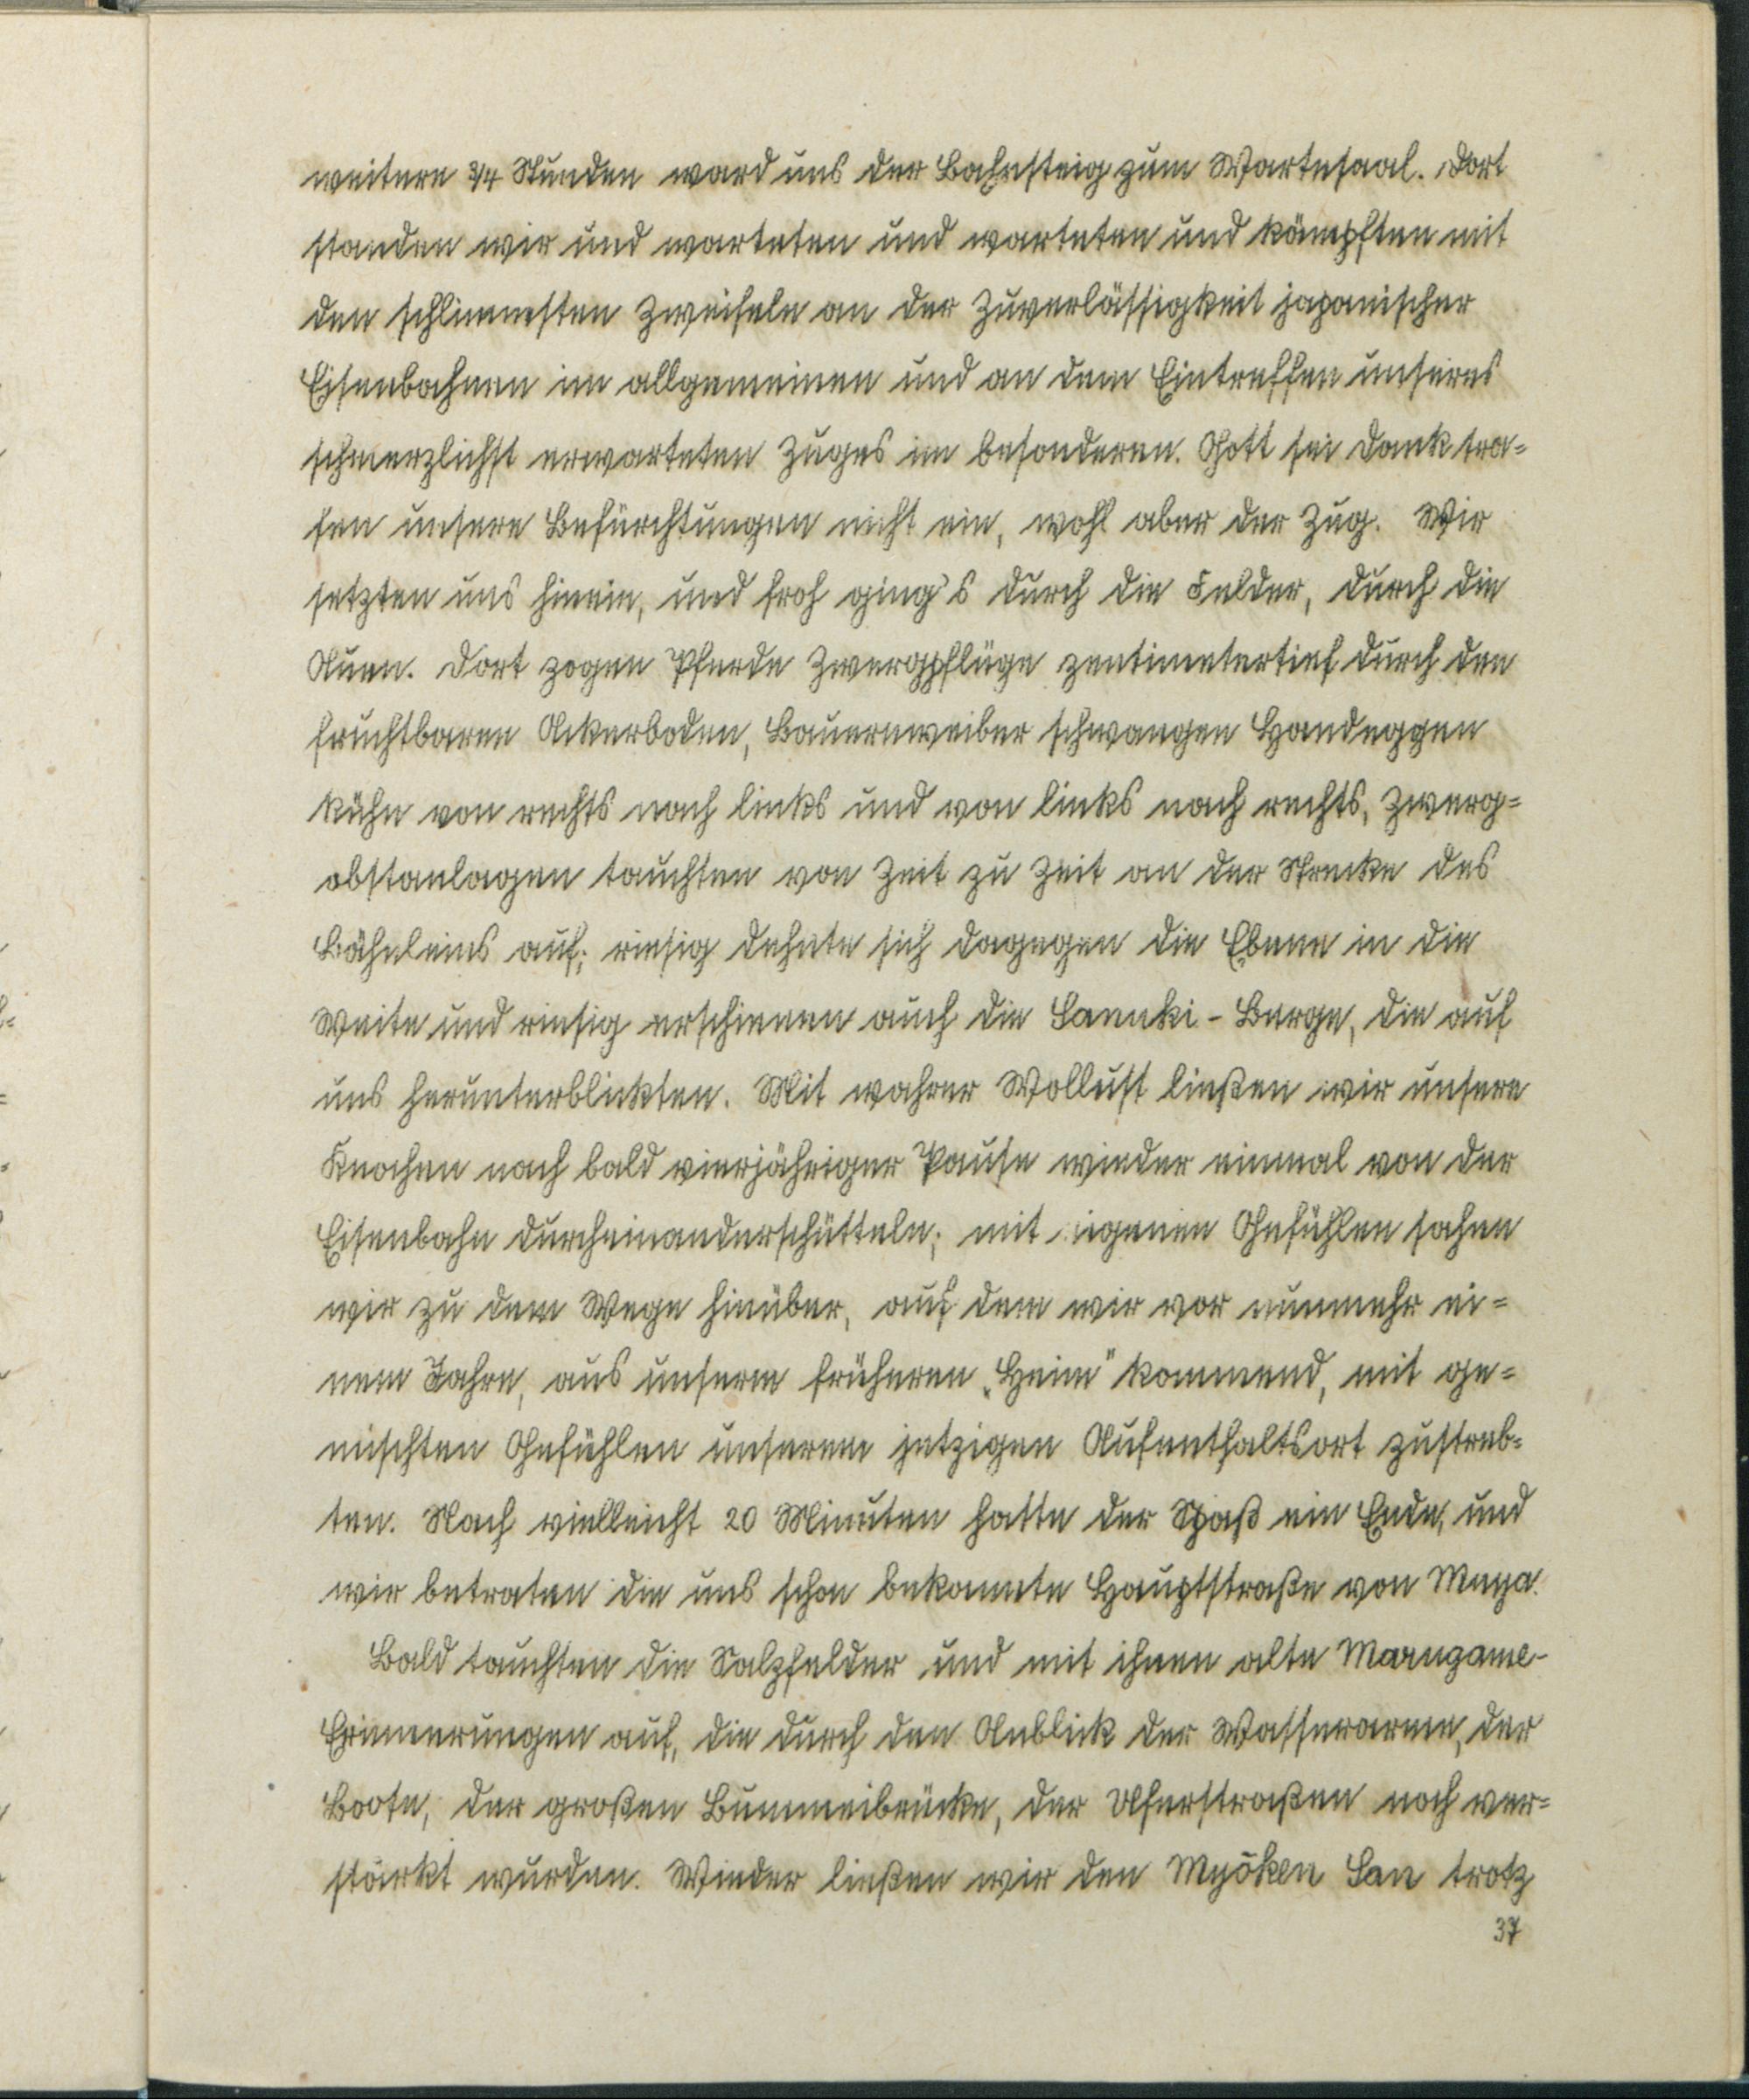 weitere 3/4 Stunden ward uns der Bahnsteig zum Wartesaal. Dort
standen wir und warteten und warteten und kämpften mit
den schlimmsten Zweifeln an der Zuverlässigkeit japanischer
Eisenbahnen im allgemeinen und an dem Eintreffen unseres
schmerzlichst erwarteten Zuges im besonderen. Gott sei Dank tra=
fen unsere Befürchtungen nicht ein, wohl aber der Zug. Wir
setzten uns hinein, und froh ging's durch die Felder, durch die
Auen. Dort zogen Pferde Zwergpflüge zentimetertief durch den
fruchtbaren Ackerboden, Bauernweiber schwangen Handeggen
kühn von rechts nach links und von links nach rechts, Zwerg=
obstanlagen tauchten von Zeit zu Zeit an der Strecke des
Bähnleins auf; riesig dehnte sich dagegen die Ebene in die
Weite und riesig erschienen auch die Sanuki-Berge, die auf
uns herunterblickten. Mit wahrer Wollust ließen wir unsere
Knochen nach bald vierjähriger Pause wieder einmal von der
Eisenbahn durcheinanderschütteln; mit eigenen Gefühlen sahen
wir zu dem Wege hinüber, auf dem wir vor nunmehr ei=
nem Jahre, aus unserm früheren „Heim" kommend, mit ge=
mischten Gefühlen unserem jetzigen Aufenthaltsort zustreb=
ten. Nach vielleicht 20 Minuten hatte der Spaß ein Ende, und
wir betraten die uns schon bekannte Hauptstraße von Muya.
Bald tauchten die Salzfelder und mit ihnen alte Marugame-
Erinnerungen auf, die durch den Anblick der Wasserarme, der
Boote, der großen Bummeibrücke, der Uferstraßen noch ver=
stärkt wurden. Wieder ließen wir den Myōken San trotz
37